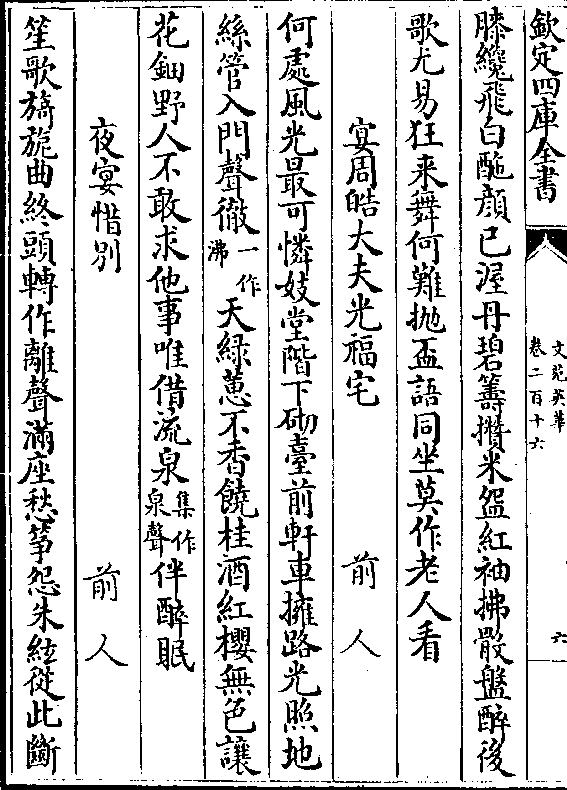 欽定四庫全書
文苑英華
卷二百十六
六
膝纔飛白酏顔已渥丹碧籌攢米盌紅袖拂骰盤醉後
歌尤易狂来舞何難抛盃語同坐莫作老人看
宴周皓大夫光福宅 前人
何處風光最可憐妓堂階下砌臺前軒車擁路光照地
絲管入門聲徹一作沸天綠蕙不香饒桂酒紅櫻無色讓
花鈿野人不敢求他事唯借流泉集作泉聲伴醉眠
夜宴惜别 前人
笙歌旖旎曲終頭轉作離聲滿座愁筝怨朱絃從此斷